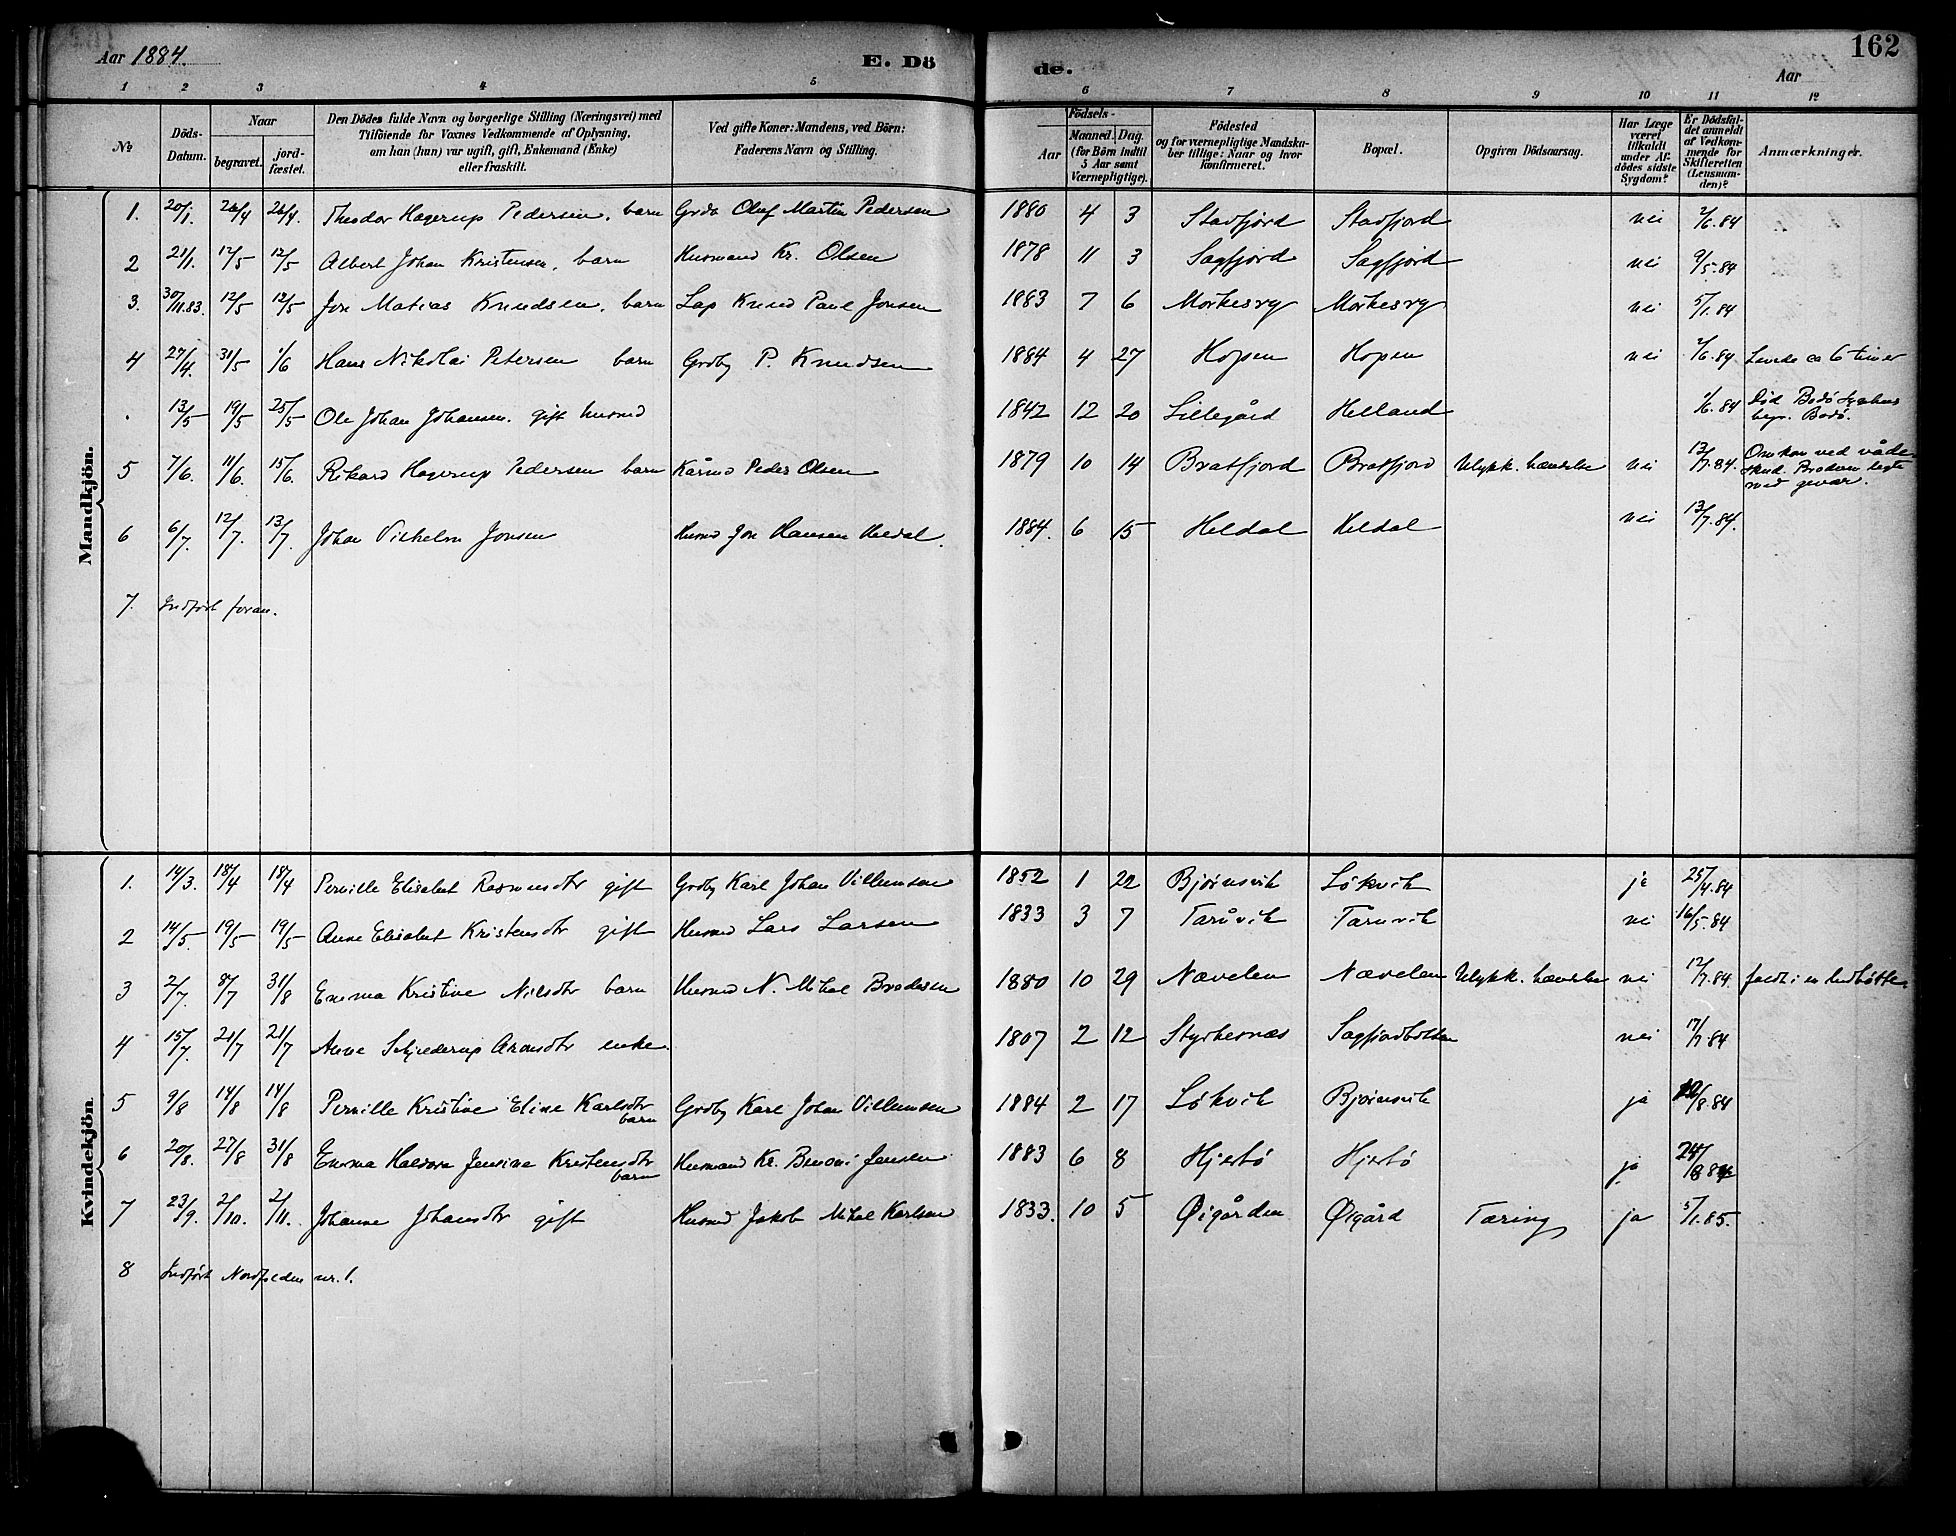 Aar 1884. E. Dö de. Aar 162
1 2 3 4 5 6 7 8 9 10 11 12
No Döds-Datum. Naar begravet. jord-fæstet. Den Dödes fulde Navn og borgerlige Stilling (Næringsvei) med Tilföiende for Voxnes Vedkommende af Oplysning, om han (hun) var ugift, gift, Enkemand (Enke) eller fraskilt. Ved gifte Koner: Mandens, ved Börn: Faderens Navn og Stilling. Födsels- Aar Maaned. Dag. (for Börn indtil 5 Aar samt Værnepligtige). Födested og for værnepligtige Mandskaber tillige: Naar og hvor konfirmeret. Bopæl. Opgiven Dödsaarsag. Har Læge været tilkaldt under Afdödes sidste Sygdom? Er Dödsfaldet anmeldt af Vedkommende for Skifteretten (Lensmanden)? Anmærkninger.
Mandkjön.
1. 20/1. 26/4 26/4. Theodor Hagerup Pedersen, barn Grdb Oluf Martin Pedersen 1880 4 3 Stavfjord Stavfjord nei 2/6.84
2 21/1. 12/5 12/5 Albert Johan Kristensen, barn Husmand Kr. Olsen 1878 11 3 Sagfjord Sagfjord nei 9/5.84
3. 30/11.83. 12/5 12/5 Jon Matias Knudsen, barn Lap Knud Paul Jonsen 1883 7 6 Mørkesvg Mørkesvg nei 5/1.84
4 27/4. 31/5 1/6 Hans Nikolai Petersen barn Grdby P. Knudsen 1884 4 27 Hopen Hopen nei 2/6.84 Levede ca 6 timer
. 13/5 19/5 25/5 Ole Johan Johansen. gift husmd 1842 12 20 Lillegård Helland 1/6.84 Död Bodö Sygehus begr. Bodö.
5 7/6. 11/6. 15/6. Rikard Hagerup Pedersen barn Kårmd Peder Olsen 1879 10 14 Bratfjord Bratfjord Ulykk. hændelse nei 13/7.84. Omkom ved vådeskud. Broderen legte med gevær.
6 6/7. 12/7. 13/7. Johan Vilhelm Jonsen Husmd Jon Hansen Heldal. 1884. 6 15 Heldal Heldal nei 13/7.84.
7. Indført foran.
Kvindekjön
1. 14/3. 18/4 18/4 Pernille Elisabet Rasmusdtr gift Grdby Karl Johan Villumsen 1852 1 22 Bjørnsvik Løkvik ja 25/4.84
2 14/5. 19/5 19/5 Anne Elisabet Kristensdtr gift Husmd Lars Larsen 1833 3 7 Tårnvik Tårnvik nei 16/5.84
3 2/7. 8/7 31/8 Emma Kristine Nilsdtr barn Husmd N. Mikal Brodersen 1880 10 29 Nævelen Nævelen Ulykk. hændelse nei 12/7.84. faldt i en ludbøtte.
4 15/7. 21/7 21/7 Anne Schjelderup Aronsdtr enke. 1807 2 12 Styrkesnæs Sagfjordbotten nei 17/7.84
5 9/8 14/8 14/8 Pernille Kristine Eline Karlsdtr barn Grdby Karl Johan Villumsen 1884 2 17 Løkvik Bjørnsvik ja /8.84
6 20/8. 27/8 31/8 Emma Haldora Jensine Kristensdtr barn Husmand Kr. Benoni Jensen 1883 6 8 Hjertö Hjertö ja 24/8 84
7 23/9. 2/10. 2/11. Johanne Johansdtr gift Husmd Jakob Mikal Karlsen 1833. 10 5 Øigården Øigård Tæring ja 5/1.85.
8 Indført Nordfolden nr. 1.